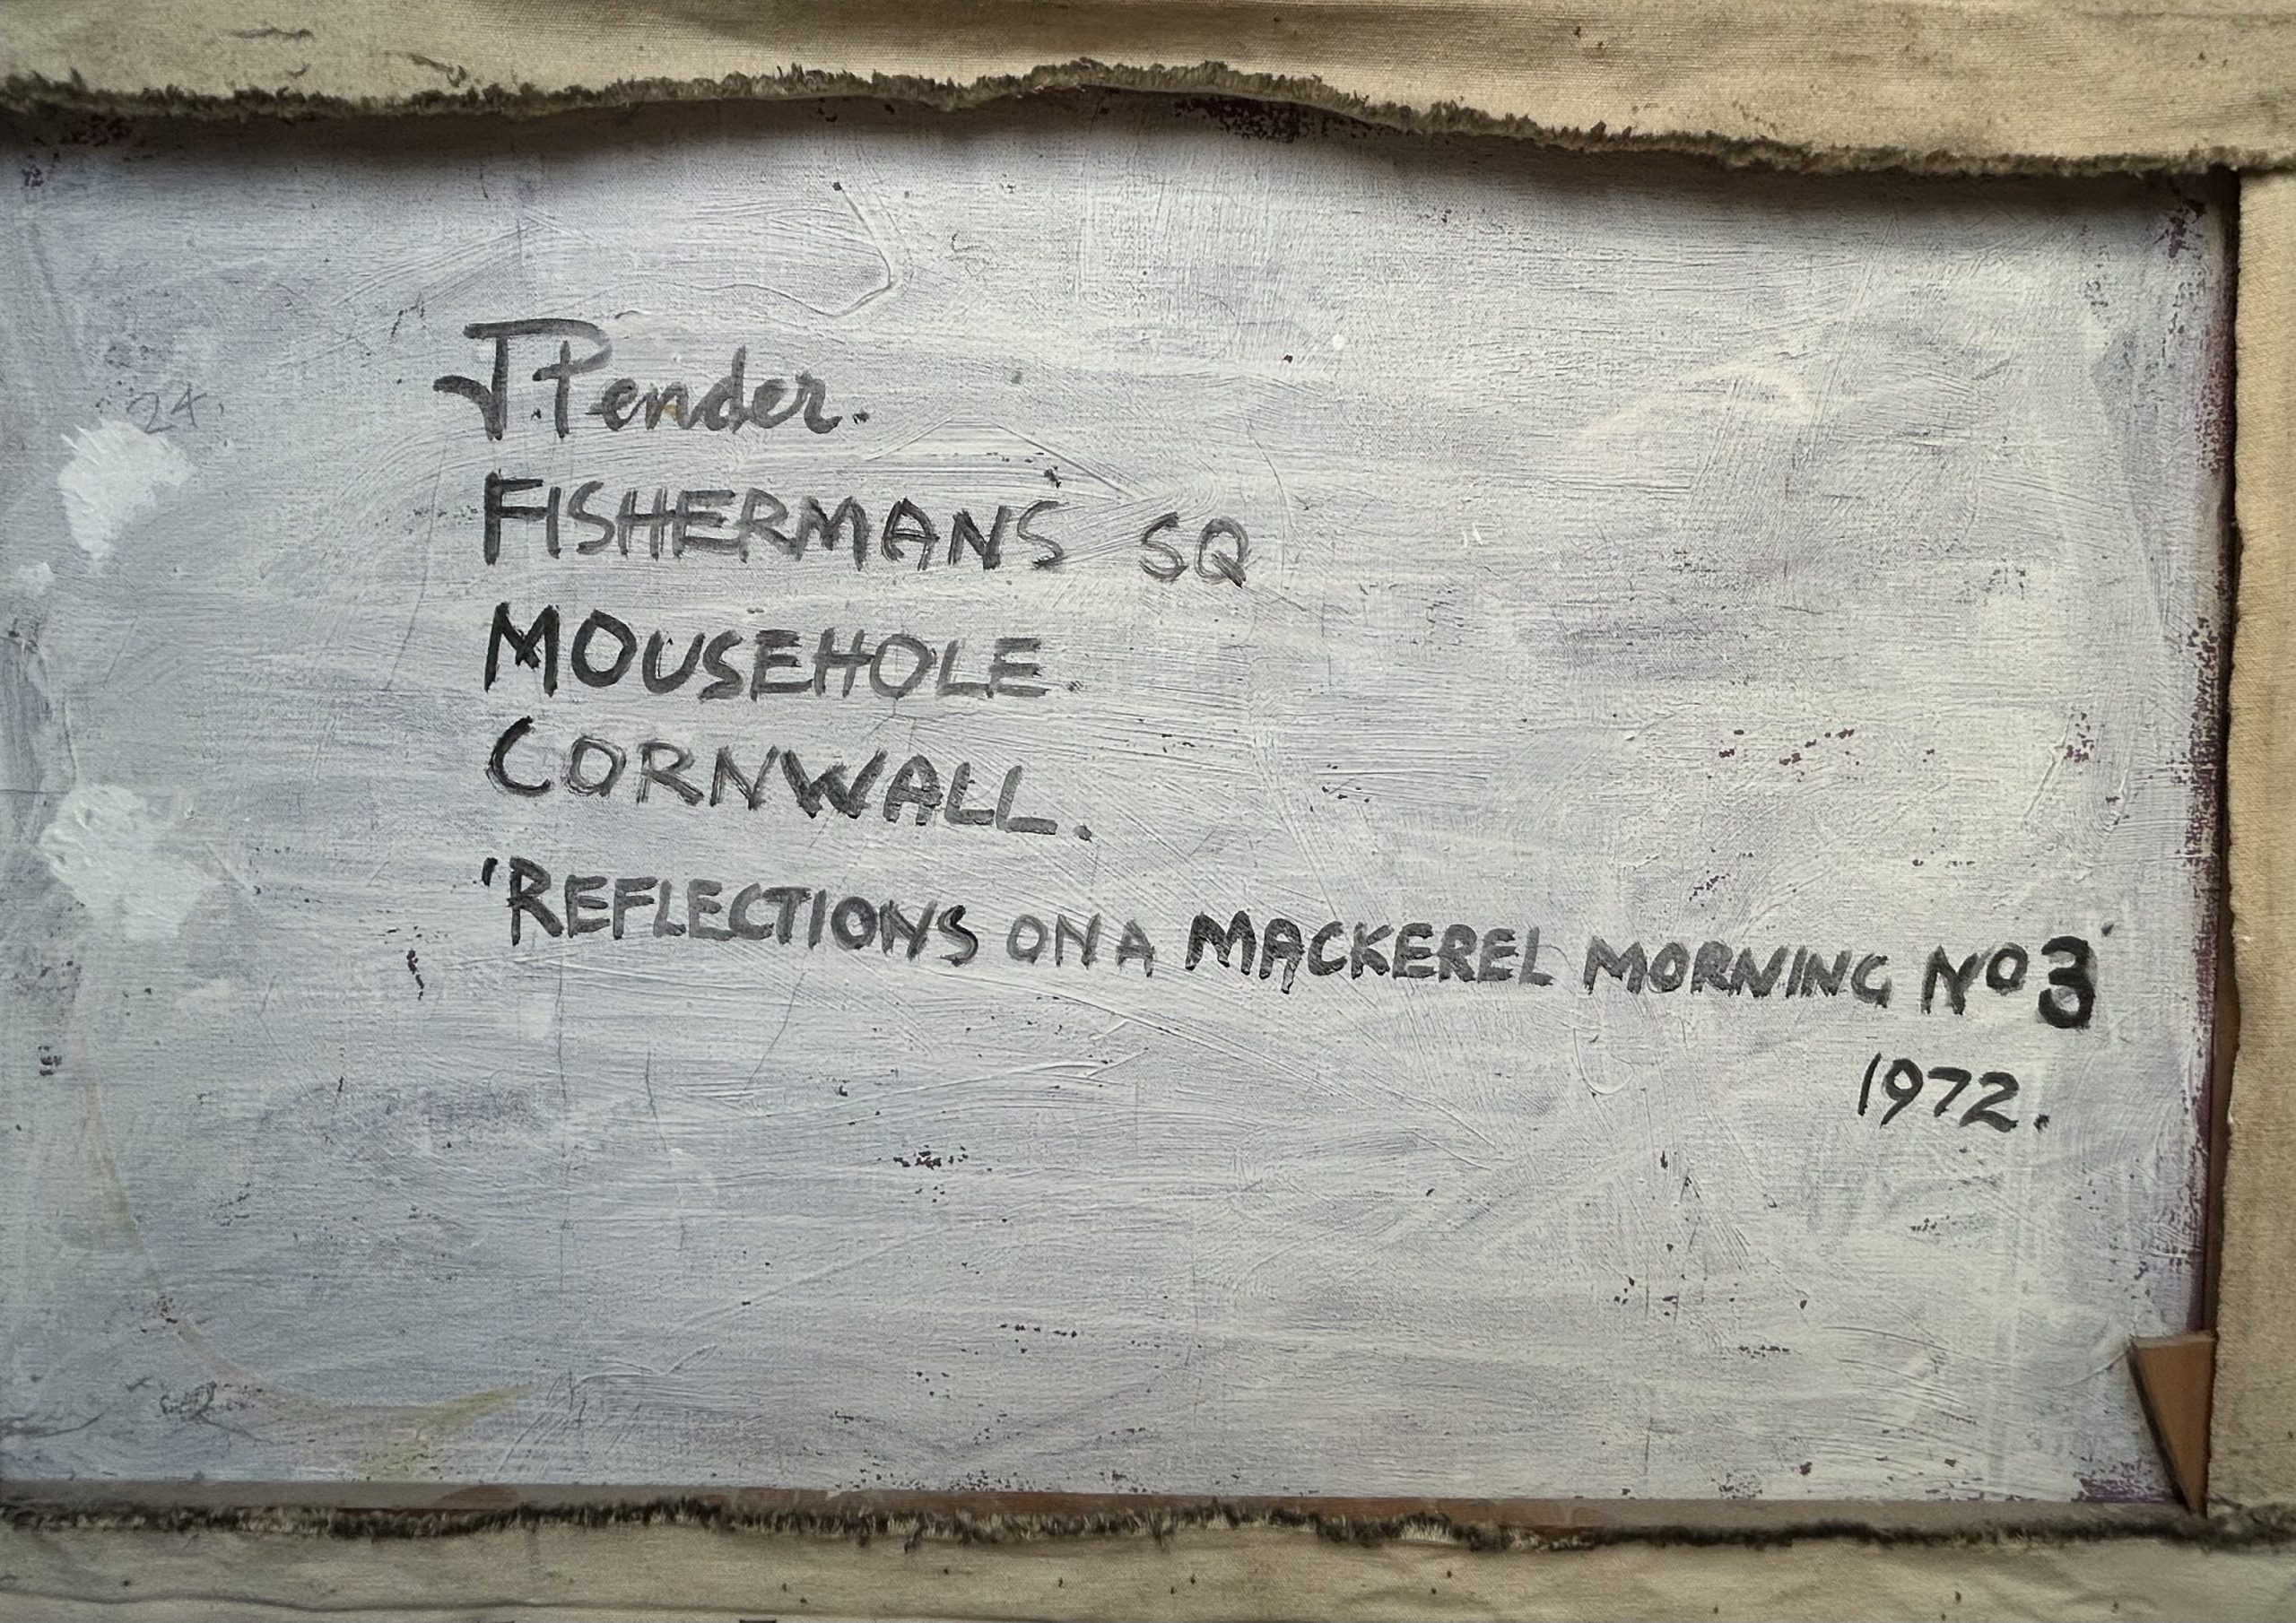 J. Pender.
FISHERMANS SQ
MOUSEHOLE
CORNWALL.
'REFLECTIONS ON A MACKEREL MORNING No 3'
1972.
24.